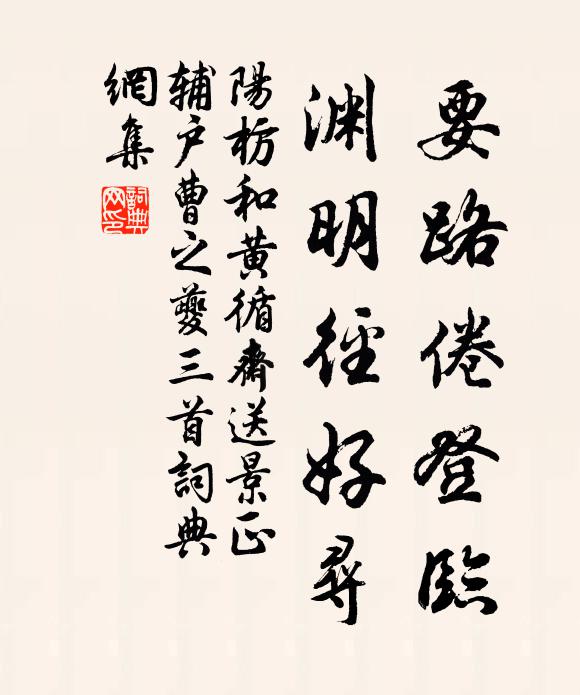 要路倦登臨
渊明徑好尋
陽枋和黃循齋送景正
輔户曹之夔三首詞典
網集
詞典网印